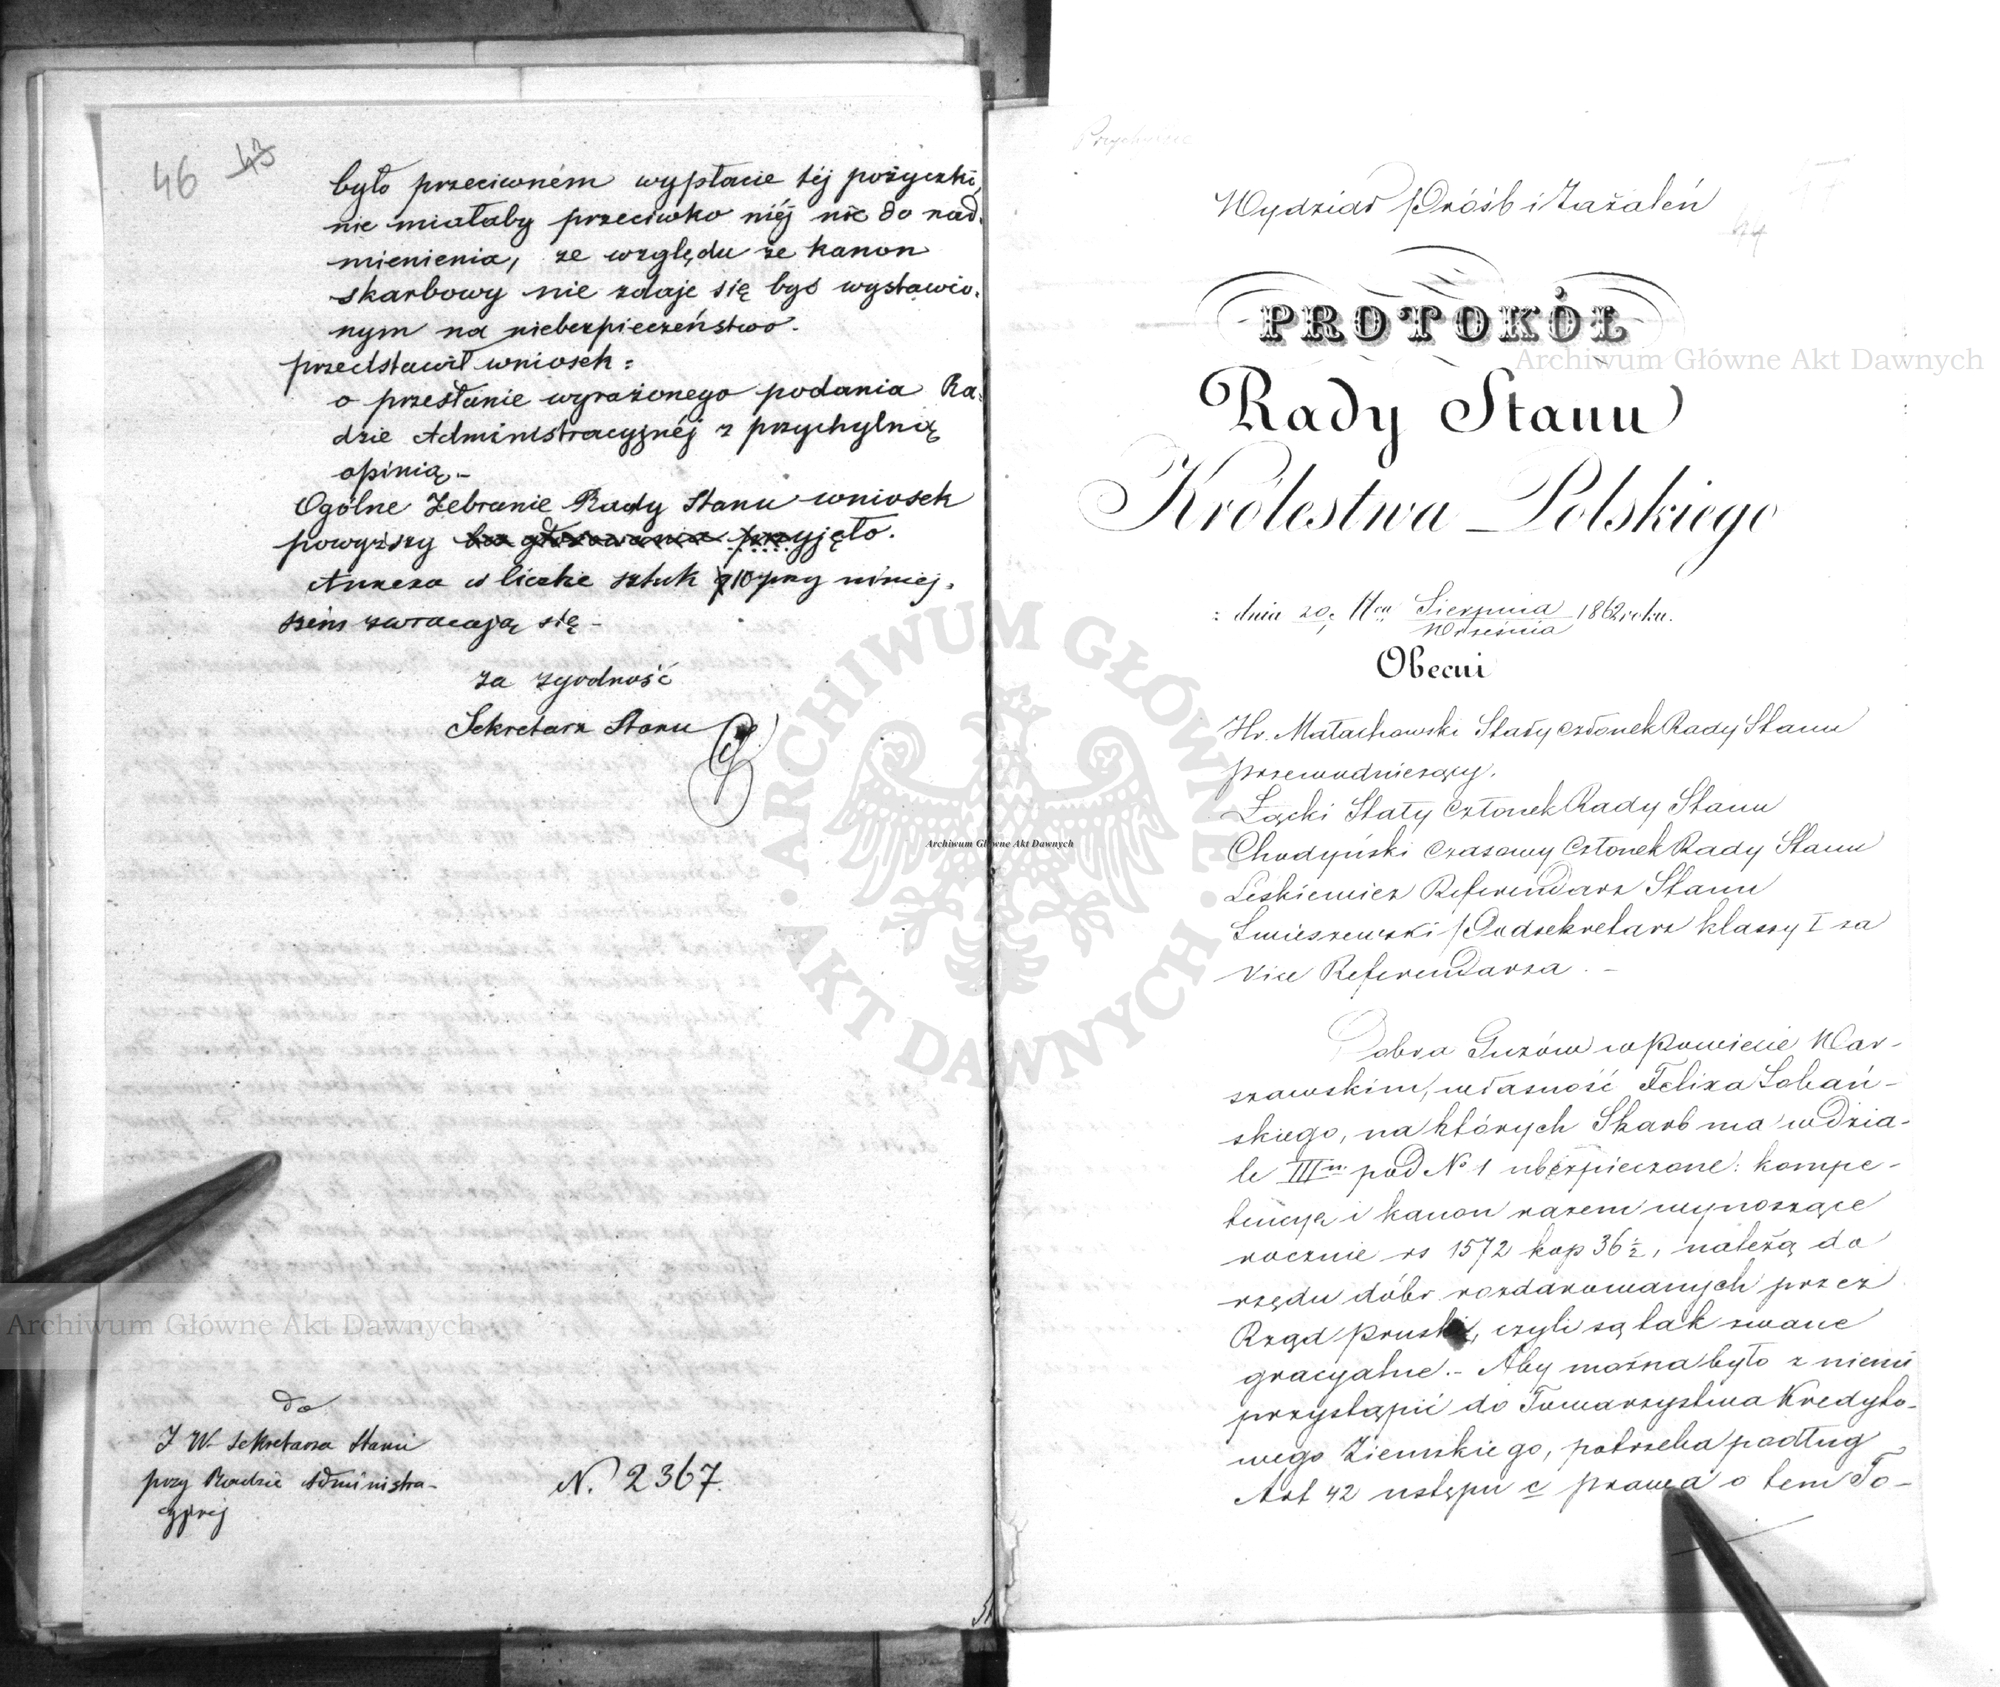 46 43
było przeciwném wypłacie téj pożyczki,
nie miałaby przeciwko niéj nic do nad-
mienienia, ze względu że kanon
skarbowy nie zdaje się być wystawio-
nym na niebezpieczeństwo.
przedstawił wniosek:
o przesłanie wyrażonego podania Ra-
dzie Administracyjnéj z przychylną
opinią.-
Ogólne Zebranie Rady Stanu wniosek
powyższy bez głosowania przyjęło.
Annexa w liczbie sztuk 10 przy niniej-
szém zwracają się -
za zgodność
Sekretarz Stanu
do
J W. Sekretarza Stanu
przy Radzie Administra-
cyjnéj
N. 2367.
Wydział Próśb i Zażaleń
44
PROTOKÓŁ
Rady Stanu
Królestwa Polskiego
dnia 20 Sierpnia / 1 Września 1862 roku.
Obecni
Hr. Małachowski Stały członek Rady Stanu
przewodniczący.
Łącki Stały Członek Rady Stanu
Chodyński Czasowy Członek Rady Stanu
Leśkiewicz Referendarz Stanu
Podsekretarz klassy I za
Vice Referendarza. -
Dobra Guzów w Powiecie War-
szawskim, własność Felixa Łubień-
skiego, na których Skarb ma w dzia-
le III pod No 1 ubezpieczone: kompe-
tencyę i kanon razem wynoszące
rocznie rs 1572 kop 36½, należą do
rzędu dóbr rozdarowanych przez
Rząd pruski, czyli są tak zwane
gracyalne.- Aby można było z niemi
przystąpić do Towarzystwa Kredyto-
wego Ziemskiego, potrzeba podług
Art 42 ustępu c prawa o tem To-
Archiwum Główne Akt Dawnych
Archiwum Główne Akt Dawnych
Archiwum Główne Akt Dawnych
ARCHIWUM GŁÓWNE AKT DAWNYCH